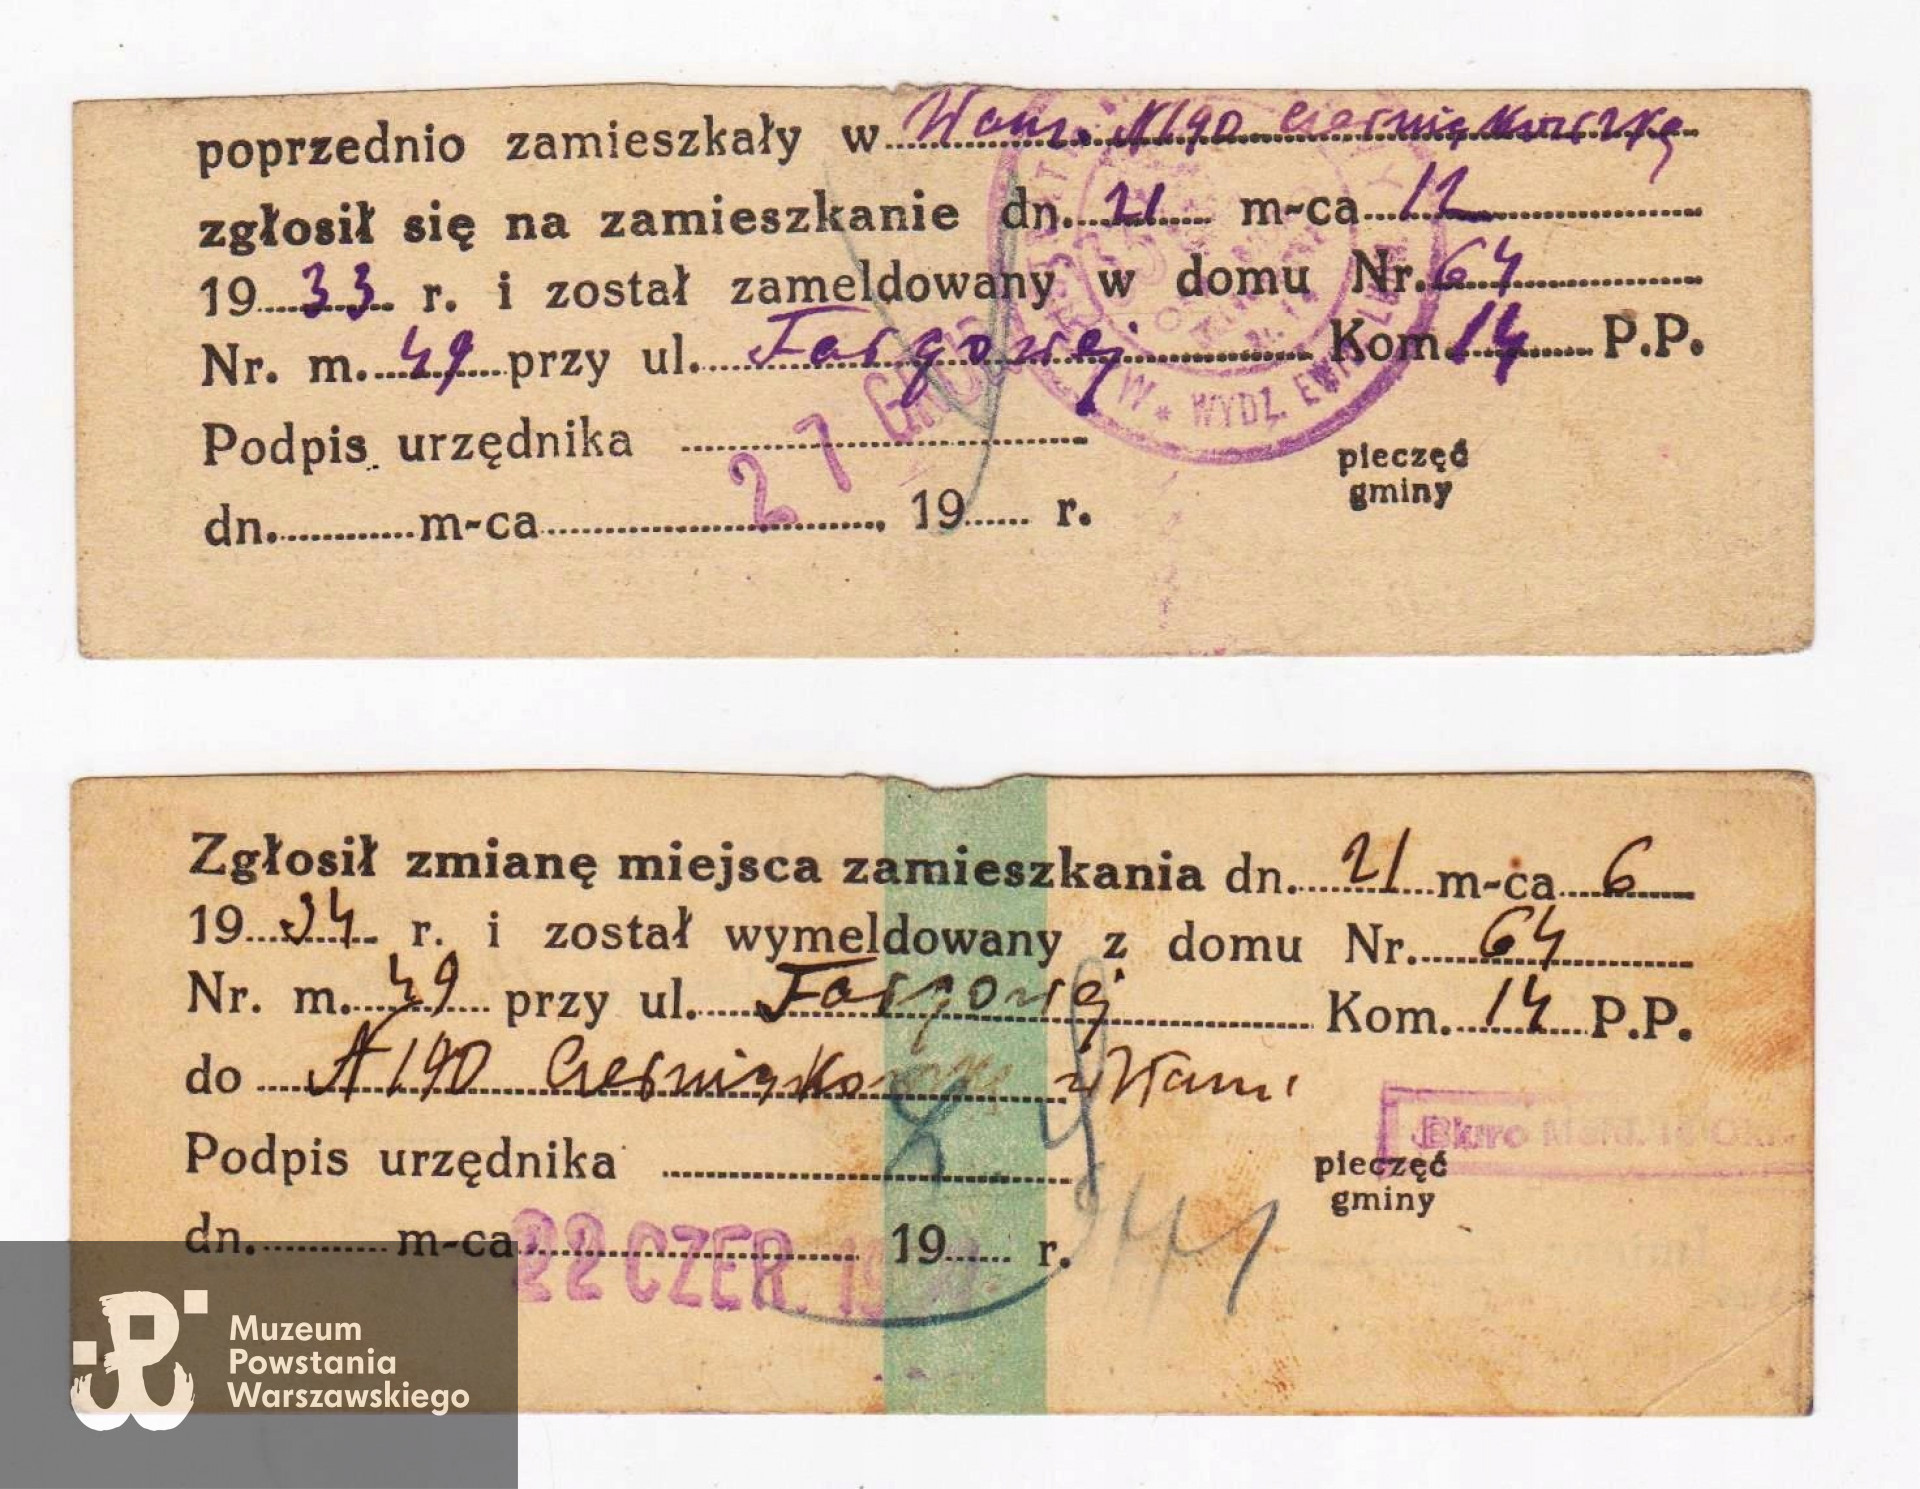 poprzednio zamieszkały w Warsz. N 190 Czerniakowską
zgłosił się na zamieszkanie dn. 21 m-ca 12
1933 r. i został zameldowany w domu Nr. 64
Nr. m. 49 przy ul. Targowej Kom. 14 P.P.
Podpis urzędnika
pieczęć
gminy
dn. m-ca 19 r.
W * WYDZ. EWID. LUDN.
Zgłosił zmianę miejsca zamieszkania dn. 21 m-ca 6
1934 r. i został wymeldowany z domu Nr. 64
Nr. m. 49 przy ul. Targowej Kom. 14 P.P.
do N 190 Czerniakowska
Biuro Meld.
Podpis urzędnika
pieczęć
gminy
dn. m-ca 19 r.
22 CZER.
Muzeum
Powstania
Warszawskiego